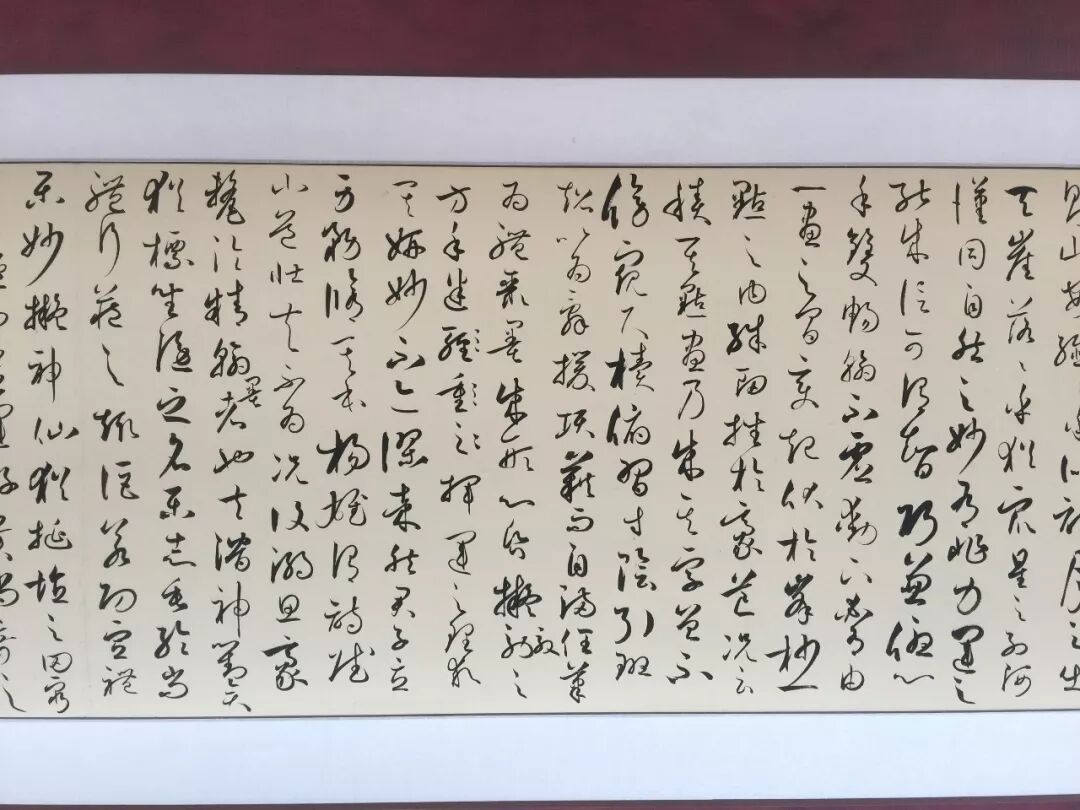 則山安纖纖乎似初月之出
天崖落落乎猶衆星之列河
漢同自然之妙有非力運之
能成信可謂智巧兼優心
手雙暢翰不虛動下必有由
一畫之間變起伏於峯杪一
點之內殊衄挫於豪芒況云
積其點畫乃成其字曾不
傍窺尺牘俯習寸陰引班
超以爲辭援項籍而自滿任筆
爲體聚墨成形心昏擬效之
方手迷輕重之揮運之理求
其妍妙不亦謬哉然君子立
身務脩其本楊雄謂詩賦
小道壯夫不爲況復溺思豪
氂淪精翰墨者也夫潛神對弈
猶標坐隱之名樂志垂綸尚
體行藏之趣詎若功宣禮
樂妙擬神仙猶埏埴之罔窮